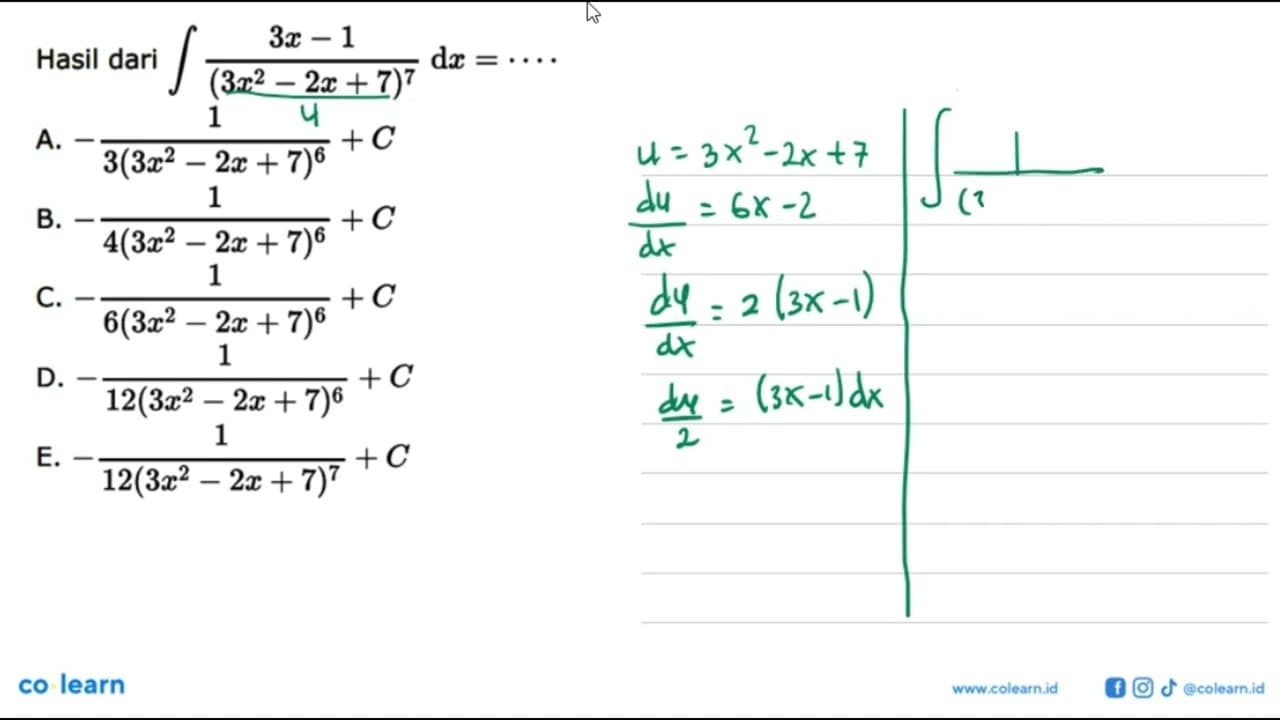 Hasil dari ∫ (3x − 1)/(3x² − 2x + 7)⁷ dx = ····
u
A. −1/(3(3x² − 2x + 7)⁶) + C
B. −1/(4(3x² − 2x + 7)⁶) + C
C. −1/(6(3x² − 2x + 7)⁶) + C
D. −1/(12(3x² − 2x + 7)⁶) + C
E. −1/(12(3x² − 2x + 7)⁷) + C
u = 3x² - 2x + 7
du/dx = 6x - 2
du/dx = 2 (3x - 1)
du/2 = (3x - 1) dx
∫ 1/(
co learn
www.colearn.id
@colearn.id